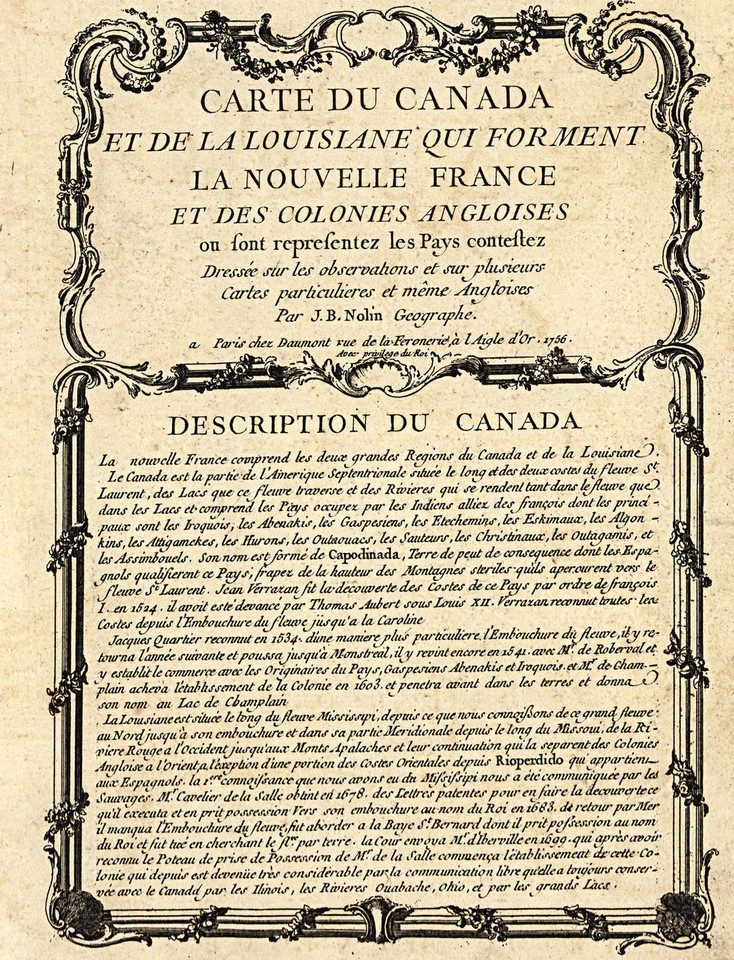 CARTE DU CANADA
ET DE LA LOUISIANE QUI FORMENT
LA NOUVELLE FRANCE
ET DES COLONIES ANGLOISES
ou sont representez les Pays contestez
Dressée sur les observations et sur plusieurs
Cartes particulieres et même Angloises
Par J. B. Nolin Geographe.
a Paris chez Daumont rue de la Feronerie à l'Aigle d'Or. 1756.
Avec privilege du Roi
DESCRIPTION DU CANADA
La nouvelle France comprend les deux grandes Regions du Canada et de la Louisiane.
Le Canada est la partie de l'Amerique Septentrionale située le long et des deux costes du fleuve St.
Laurent, des Lacs que ce fleuve traverse et des Rivieres qui se rendent tant dans le fleuve que
dans les Lacs et comprend les Pays occupez par les Indiens alliez des françois dont les princi-
paux sont les Iroquois, les Abenakis, les Gaspesiens, les Etechemins, les Eskimaux, les Algon-
kins, les Attigamekes, les Hurons, les Outaouacs, les Sauteurs, les Christinaux, les Outagamis, et
les Assimbouels. Son nom est formé de Capodinada, Terre de peut de consequence dont les Espa-
gnols qualifierent ce Pays, frapez de la hauteur des Montagnes steriles quils apercurent vers le
fleuve St. Laurent. Jean Verrazan fit la decouverte des Costes de ce Pays par ordre de françois
I. en 1524. il avoit esté devancé par Thomas Aubert sous Louis XII. Verrazan reconnut toutes les
Costes depuis l'Embouchure du fleuve jusqu'a la Caroline
Jacques Quartier reconnut en 1534. dune maniere plus particuliere, l'Embouchure du fleuve, il y re-
tourna l'année suivante et poussa jusqu'à Monstreal, il y revint encore en 1541. avec Mr. de Roberval et
y establit le commerce avec les Originaires du Pays, Gaspesiens Abenakis et Iroquois. et Mr. de Cham-
plain acheva l'établissment de la Colonie en 1603. et penetra avant dans les terres et donna
son nom au Lac de Champlain
La Louisiane est située le long du fleuve Missisipi, depuis ce que nous connoissons de ce grand fleuve
au Nord jusqu'a son embouchure et dans sa partie Meridionale depuis le long du Missoui, de la Ri-
viere Rouge a l'Occident jusqu'aux Monts Apalaches et leur continuation qui la separent des Colonies
Angloise a l'Orient, a l'exception d'une portion des Costes Orientales depuis Rioperdido qui appartien
aux Espagnols. la 1ere connoissance que nous avons eu du Missisipi nous a été communiquée par les
Sauvages. Mr. Cavelier de la Salle obtint en 1678. des Lettres patentes pour en faire la decouverte ce
qu'il executa et en prit possession Vers son embouchure au nom du Roi en 1683. de retour par Mer
il manqua l'Embouchure du fleuve, fut aborder a la Baye St. Bernard dont il prit possession au nom
du Roi et fut tué en cherchant le fl. par terre. la Cour envoya Mr. d'Iberville en 1699. qui après avoir
reconnu le Poteau de prise de Possession de Mr. de la Salle commença l'établissement de cette Co-
lonie qui depuis est devenüe très considerable par la communication libre qu'elle a toujours conser-
vée avec le Canada par les Ilinois, les Rivieres Ouabache, Ohio, et par les grands Lacs.